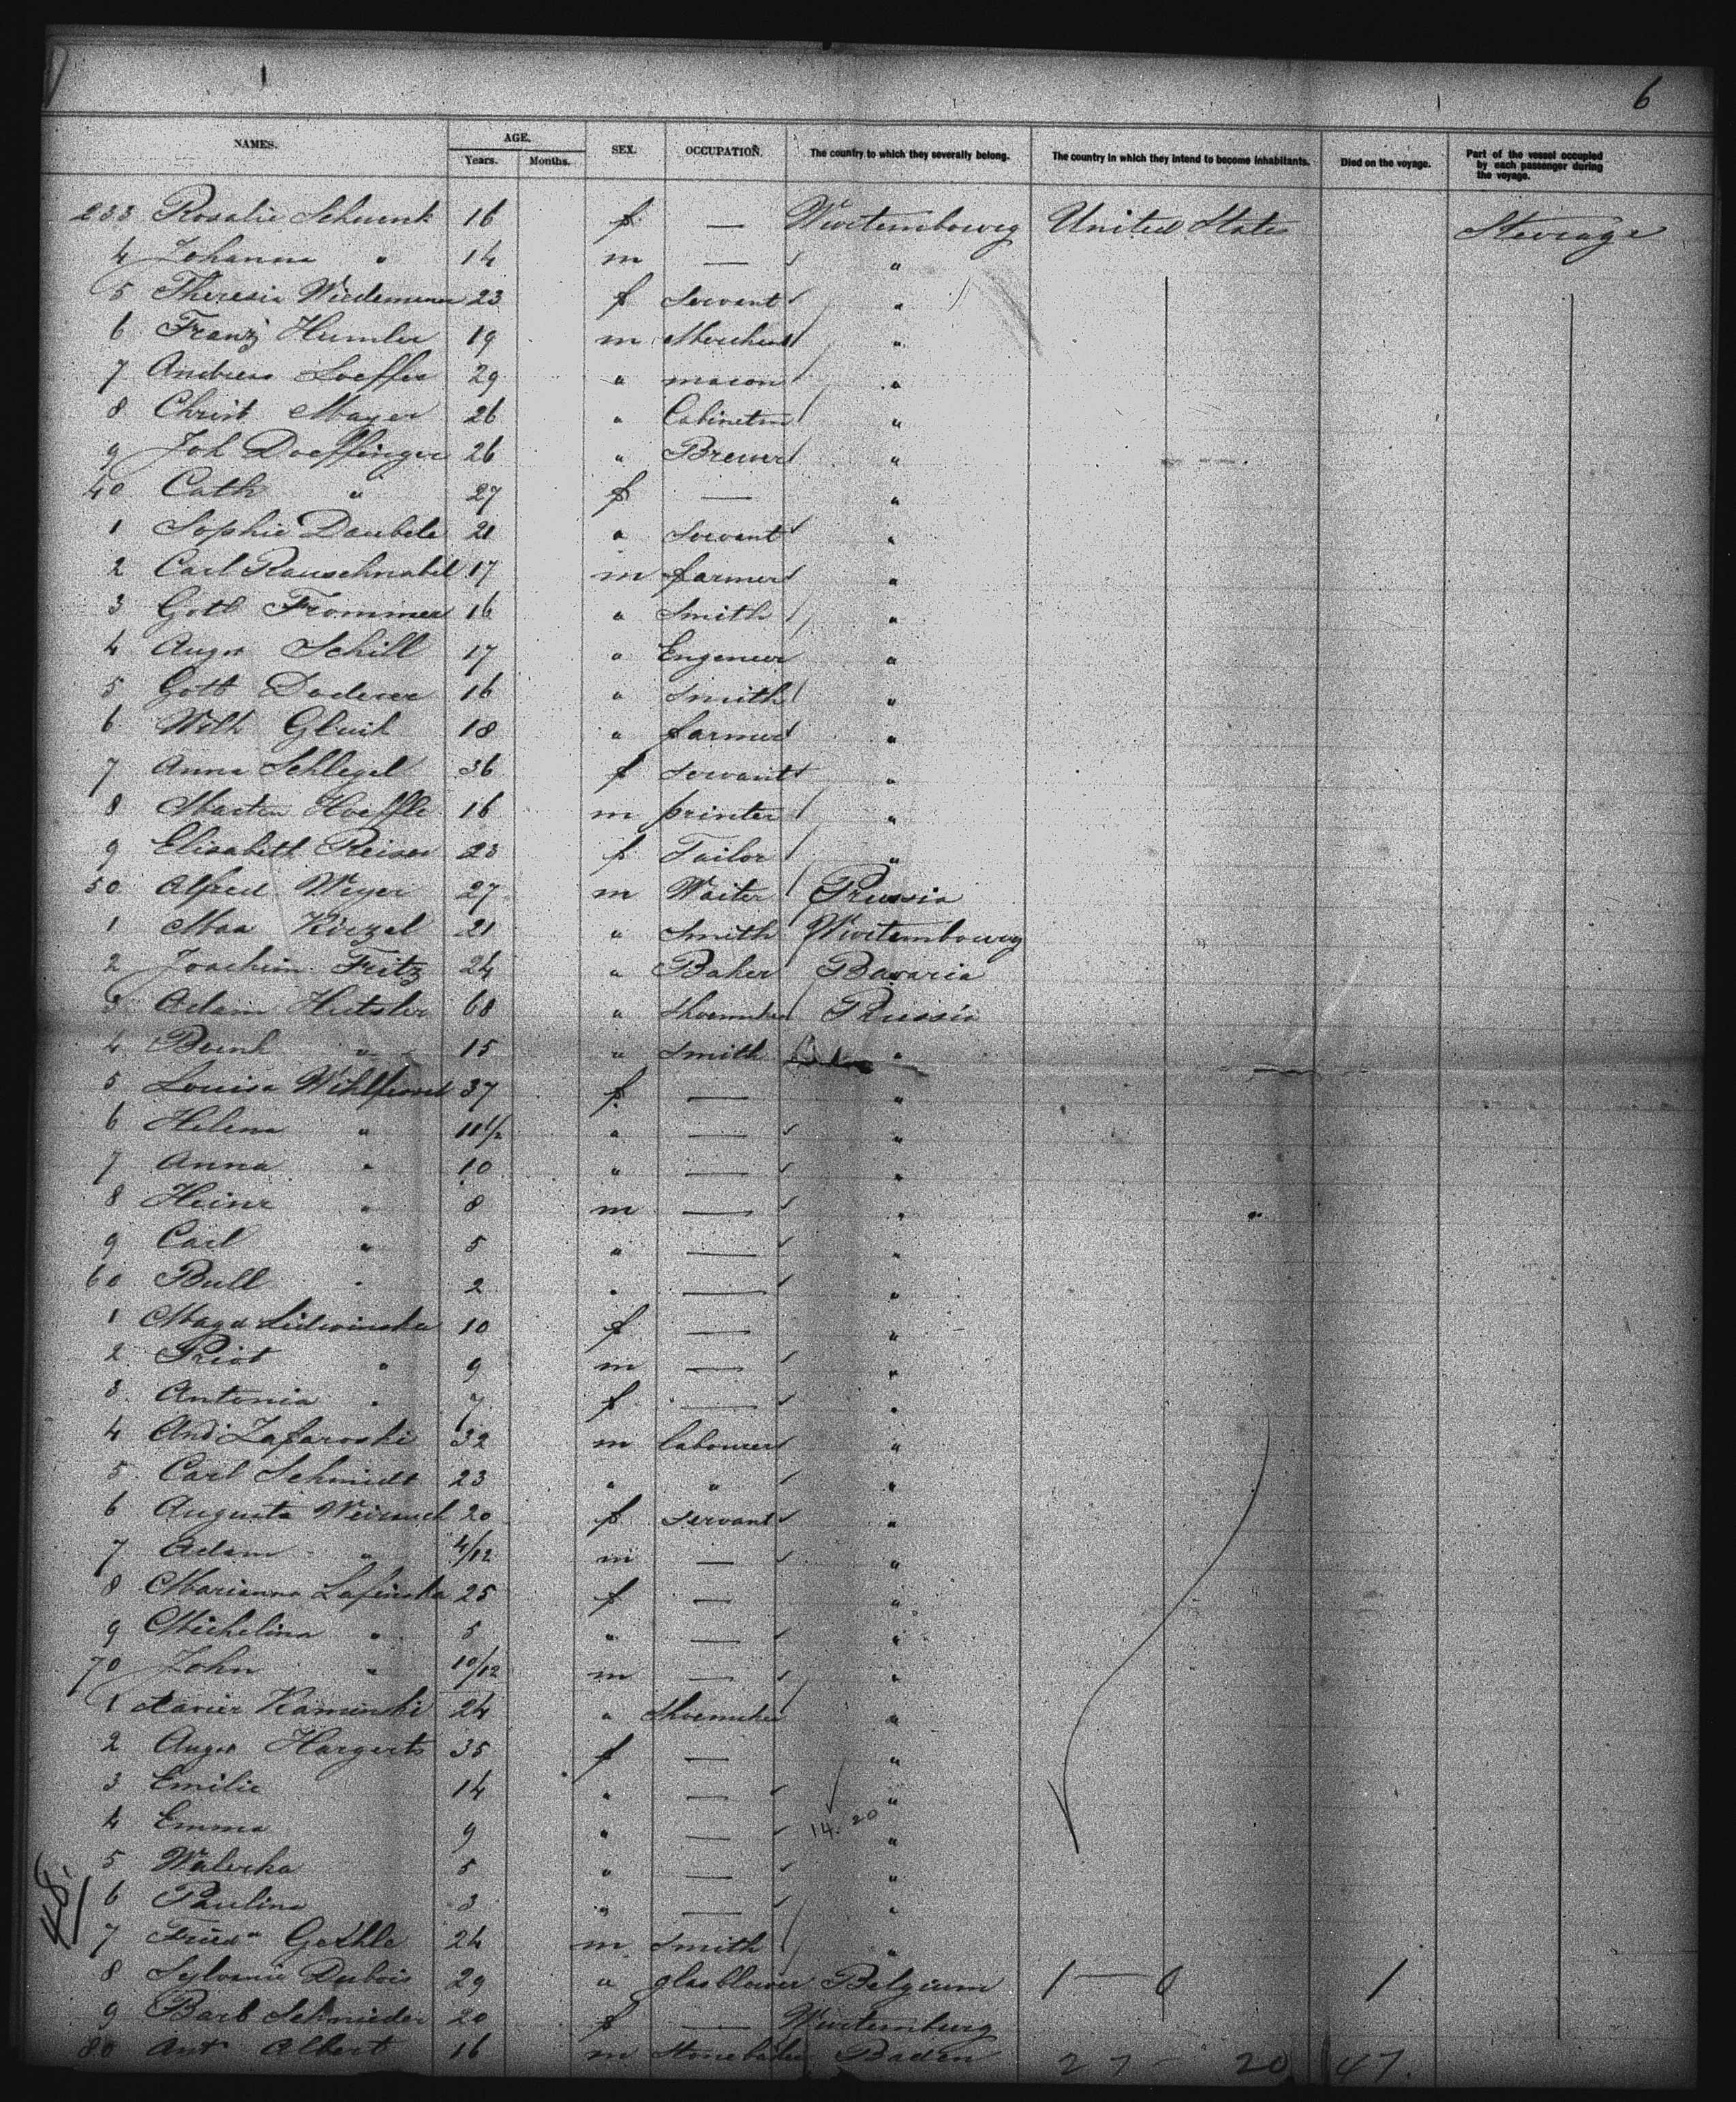 6
NAMES. AGE. SEX. OCCUPATION. The country to which they severally belong. The country in which they intend to become inhabitants. Died on the voyage. Part of the vessel occupied by each passenger during the voyage.
Years. Months.
233 Rosalie Schwenk 16 f — Wurtembourg United States Steerage
4 Johanna " 14 m — "
5 Theresia Wiedemann 23 f Servant "
6 Franz Humler 19 m Merchant "
7 Andreas Loeffler 29 " mason "
8 Christ Mayer 26 " Cabinetm "
9 Joh Doeffinger 26 " Brewer "
40 Cath " 27 f — "
1 Sophie Daubele 21 " Servant "
2 Carl Rauschnabel 17 m farmer "
3 Gotl Frommer 16 " Smith "
4 Augst Schill 17 " Engeneer "
5 Gott Doderer 16 " Smith "
6 Wilh 18 " farmer "
7 Anna Schlegel 36 f Servant "
8 Martin Hoeffle 16 m printer "
9 Elisabeth Reiser 23 f Tailor "
50 Alfred Weyer 27 m Waiter Prussia
1 Max Kirzel 21 " Smith Wurtembourg
2 Joachim Fritz 24 " Baker Bavaria
3 Adam Hutsler 68 " Shoemaker Prussia
4 " 15 " Smith "
5 Louisa 37 f — "
6 Helena " 11 1/2 " — "
7 Anna " 10 " — "
8 Heinr " 8 m — "
9 Carl " 5 " — "
60 Bull " 2 " — "
1 10 f — "
2 Priot " 9 m — "
3 Antonia " 7 f — "
4 And Zafaroski 32 m labourer "
5 Carl Schmidt 23 " " "
6 Augusta 20 f Servant "
7 Adam " 4/12 m — "
8 Marianna Lafinska 25 f — "
9 Michelina " 5 " — "
70 John " 10/12 m — "
1 Xavier Kaminski 24 " Shoemaker "
2 Augst Hargerts 35 f — "
3 Emilie 14 " — "
4 Emma 9 " — 14. 20 "
5 Walerka 5 " — "
48.
6 Paulina 3 " — "
7 Fried Gethle 24 m Smith "
8 Sylvanie Dubois 29 " glasblower Belgium 1 — 0 1
9 Barb Schnieder 20 f — Wurtemburg
80 Ant Albert 16 m Baden 27 - 20 47.